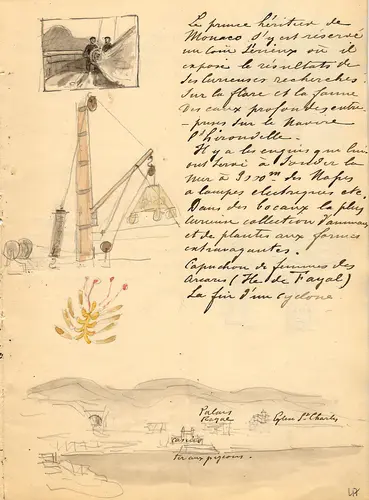 Le prince héritier de
Monaco s'y est réservé
un coin sérieux où il
expose le résultats de
ses curieuses recherches
sur la flore et la faune
des eaux profondes entre
- prises sur le Navire
l'hirondelle.
Il y a les engins qui lui
ont servi à sonder la
mer à 3.000m des Nasses
a lampes electriques etc
Dans des bocaux la plus
curieuse collection d'animaux
et de plantes aux formes
extravagantes.
Capuchon de femmes des
Açores (Ile de Fayal)
La fin d'un cyclone
Palais
Royal
Eglise St Charles
Casino
Tir aux pigeons.